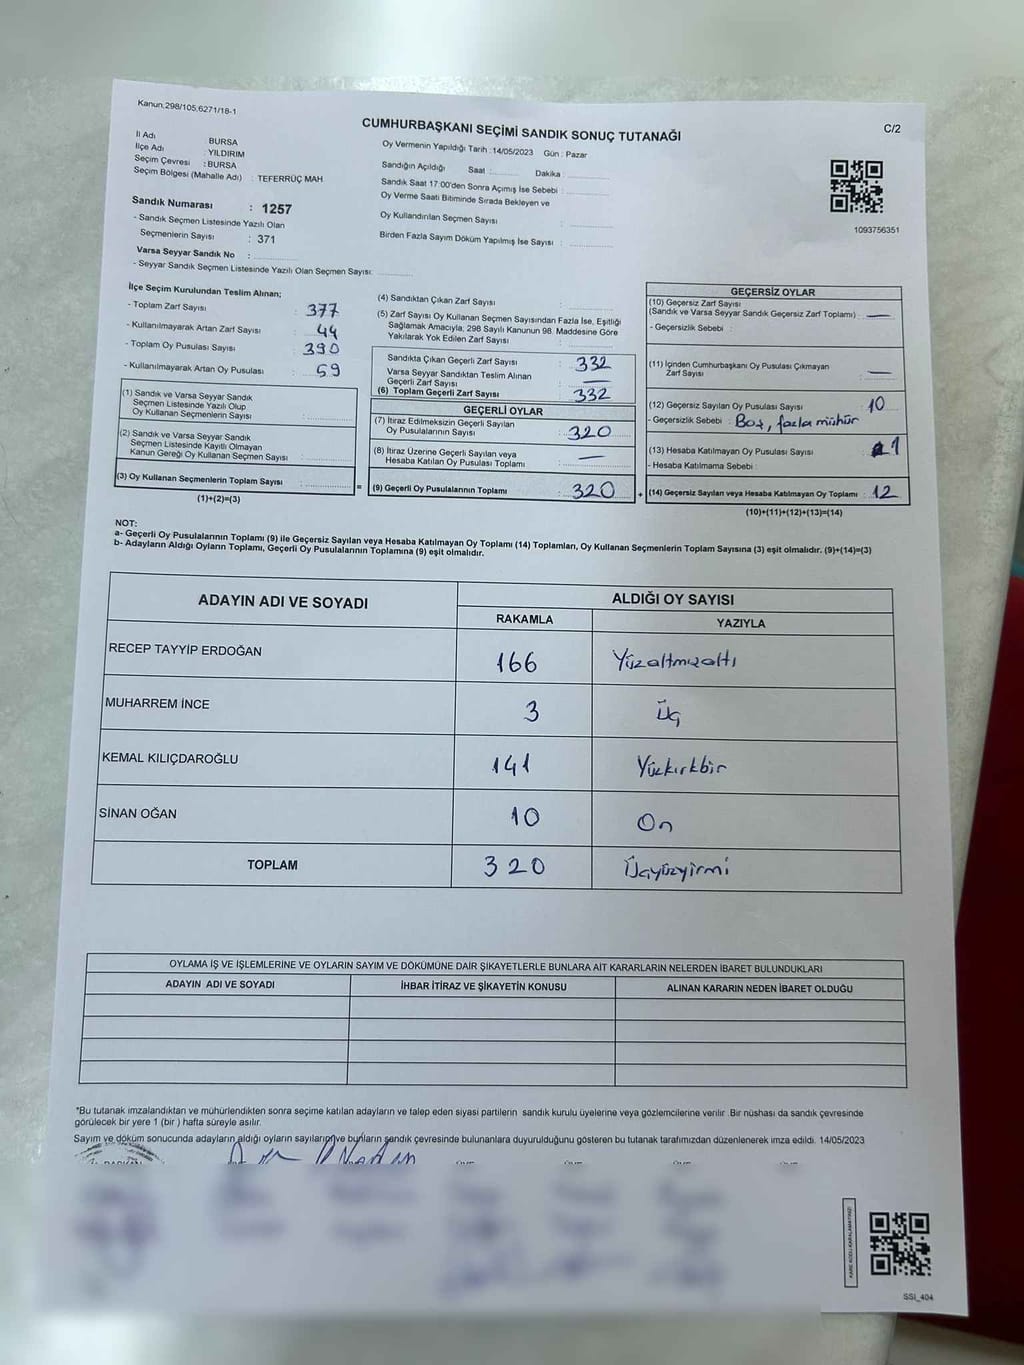 Kanun,298/105,6271/18-1
C/2
CUMHURBAŞKANI SEÇİMİ SANDIK SONUÇ TUTANAĞI
İl Adı BURSA
İlçe Adı : YILDIRIM
Seçim Çevresi : BURSA
Seçim Bölgesi (Mahalle Adı) : TEFERRÜÇ MAH
Oy Vermenin Yapıldığı Tarih :14/05/2023 Gün : Pazar
Sandığın Açıldığı Saat : Dakika :
Sandık Saat 17:00'den Sonra Açımış İse Sebebi :
Oy Verme Saati Bitiminde Sırada Bekleyen ve
Oy Kullandırılan Seçmen Sayısı :
Birden Fazla Sayım Döküm Yapılmış İse Sayısı :
1093756351
Sandık Numarası : 1257
- Sandık Seçmen Listesinde Yazılı Olan
Seçmenlerin Sayısı : 371
Varsa Seyyar Sandık No :
- Seyyar Sandık Seçmen Listesinde Yazılı Olan Seçmen Sayısı:
İlçe Seçim Kurulundan Teslim Alınan;
- Toplam Zarf Sayısı : 377
- Kullanılmayarak Artan Zarf Sayısı : 44
- Toplam Oy Pusulası Sayısı : 390
- Kullanılmayarak Artan Oy Pusulası : 59
(1) Sandık ve Varsa Seyyar Sandık
Seçmen Listesinde Yazılı Olup
Oy Kullanan Seçmenlerin Sayısı :
(2) Sandık ve Varsa Seyyar Sandık
Seçmen Listesinde Kayıtlı Olmayan
Kanun Gereği Oy Kullanan Seçmen Sayısı :
(3) Oy Kullanan Seçmenlerin Toplam Sayısı :
(1)+(2)=(3)
(4) Sandıktan Çıkan Zarf Sayısı :
(5) Zarf Sayısı Oy Kullanan Seçmen Sayısından Fazla İse, Eşitliği
Sağlamak Amacıyla, 298 Sayılı Kanunun 98. Maddesine Göre
Yakılarak Yok Edilen Zarf Sayısı :
Sandıkta Çıkan Geçerli Zarf Sayısı : 332
Varsa Seyyar Sandıktan Teslim Alınan
Geçerli Zarf Sayısı : —
(6) Toplam Geçerli Zarf Sayısı : 332
GEÇERLİ OYLAR
(7) İtiraz Edilmeksizin Geçerli Sayılan
Oy Pusulalarının Sayısı : 320
(8) İtiraz Üzerine Geçerli Sayılan veya
Hesaba Katılan Oy Pusulası Toplamı : —
= (9) Geçerli Oy Pusulalarının Toplamı : 320
GEÇERSİZ OYLAR
(10) Geçersiz Zarf Sayısı
(Sandık ve Varsa Seyyar Sandık Geçersiz Zarf Toplamı) : —
- Geçersizlik Sebebi :
(11) İçinden Cumhurbaşkanı Oy Pusulası Çıkmayan
Zarf Sayısı : —
(12) Geçersiz Sayılan Oy Pusulası Sayısı : 10
- Geçersizlik Sebebi : Boş, fazla mühür
(13) Hesaba Katılmayan Oy Pusulası Sayısı : 1
- Hesaba Katılmama Sebebi :
+ (14) Geçersiz Sayılan veya Hesaba Katılmayan Oy Toplamı : 12
(10)+(11)+(12)+(13)=(14)
NOT:
a- Geçerli Oy Pusulalarının Toplamı (9) ile Geçersiz Sayılan veya Hesaba Katılmayan Oy Toplamı (14) Toplamları, Oy Kullanan Seçmenlerin Toplam Sayısına (3) eşit olmalıdır. (9)+(14)=(3)
b- Adayların Aldığı Oyların Toplamı, Geçerli Oy Pusulalarının Toplamına (9) eşit olmalıdır.
ADAYIN ADI VE SOYADI
ALDIĞI OY SAYISI
RAKAMLA YAZIYLA
RECEP TAYYİP ERDOĞAN 166 Yüzaltmışaltı
MUHARREM İNCE 3 Üç
KEMAL KILIÇDAROĞLU 141 Yüzkırkbir
SİNAN OĞAN 10 On
TOPLAM 320 Üçyüzyirmi
OYLAMA İŞ VE İŞLEMLERİNE VE OYLARIN SAYIM VE DÖKÜMÜNE DAİR ŞİKAYETLERLE BUNLARA AİT KARARLARIN NELERDEN İBARET BULUNDUKLARI
ADAYIN ADI VE SOYADI İHBAR İTİRAZ VE ŞİKAYETİN KONUSU ALINAN KARARIN NEDEN İBARET OLDUĞU
*Bu tutanak imzalandıktan ve mühürlendikten sonra seçime katılan adayların ve talep eden siyasi partilerin sandık kurulu üyelerine veya gözlemcilerine verilir .Bir nüshası da sandık çevresinde
görülecek bir yere 1 (bir ) hafta süreyle asılır.
Sayım ve döküm sonucunda adayların aldığı oyların sayılarını ve bunların sandık çevresinde bulunanlara duyurulduğunu gösteren bu tutanak tarafımızdan düzenlenerek imza edildi. 14/05/2023
KARE KODU KARALAMAYINIZ!
SSI_404